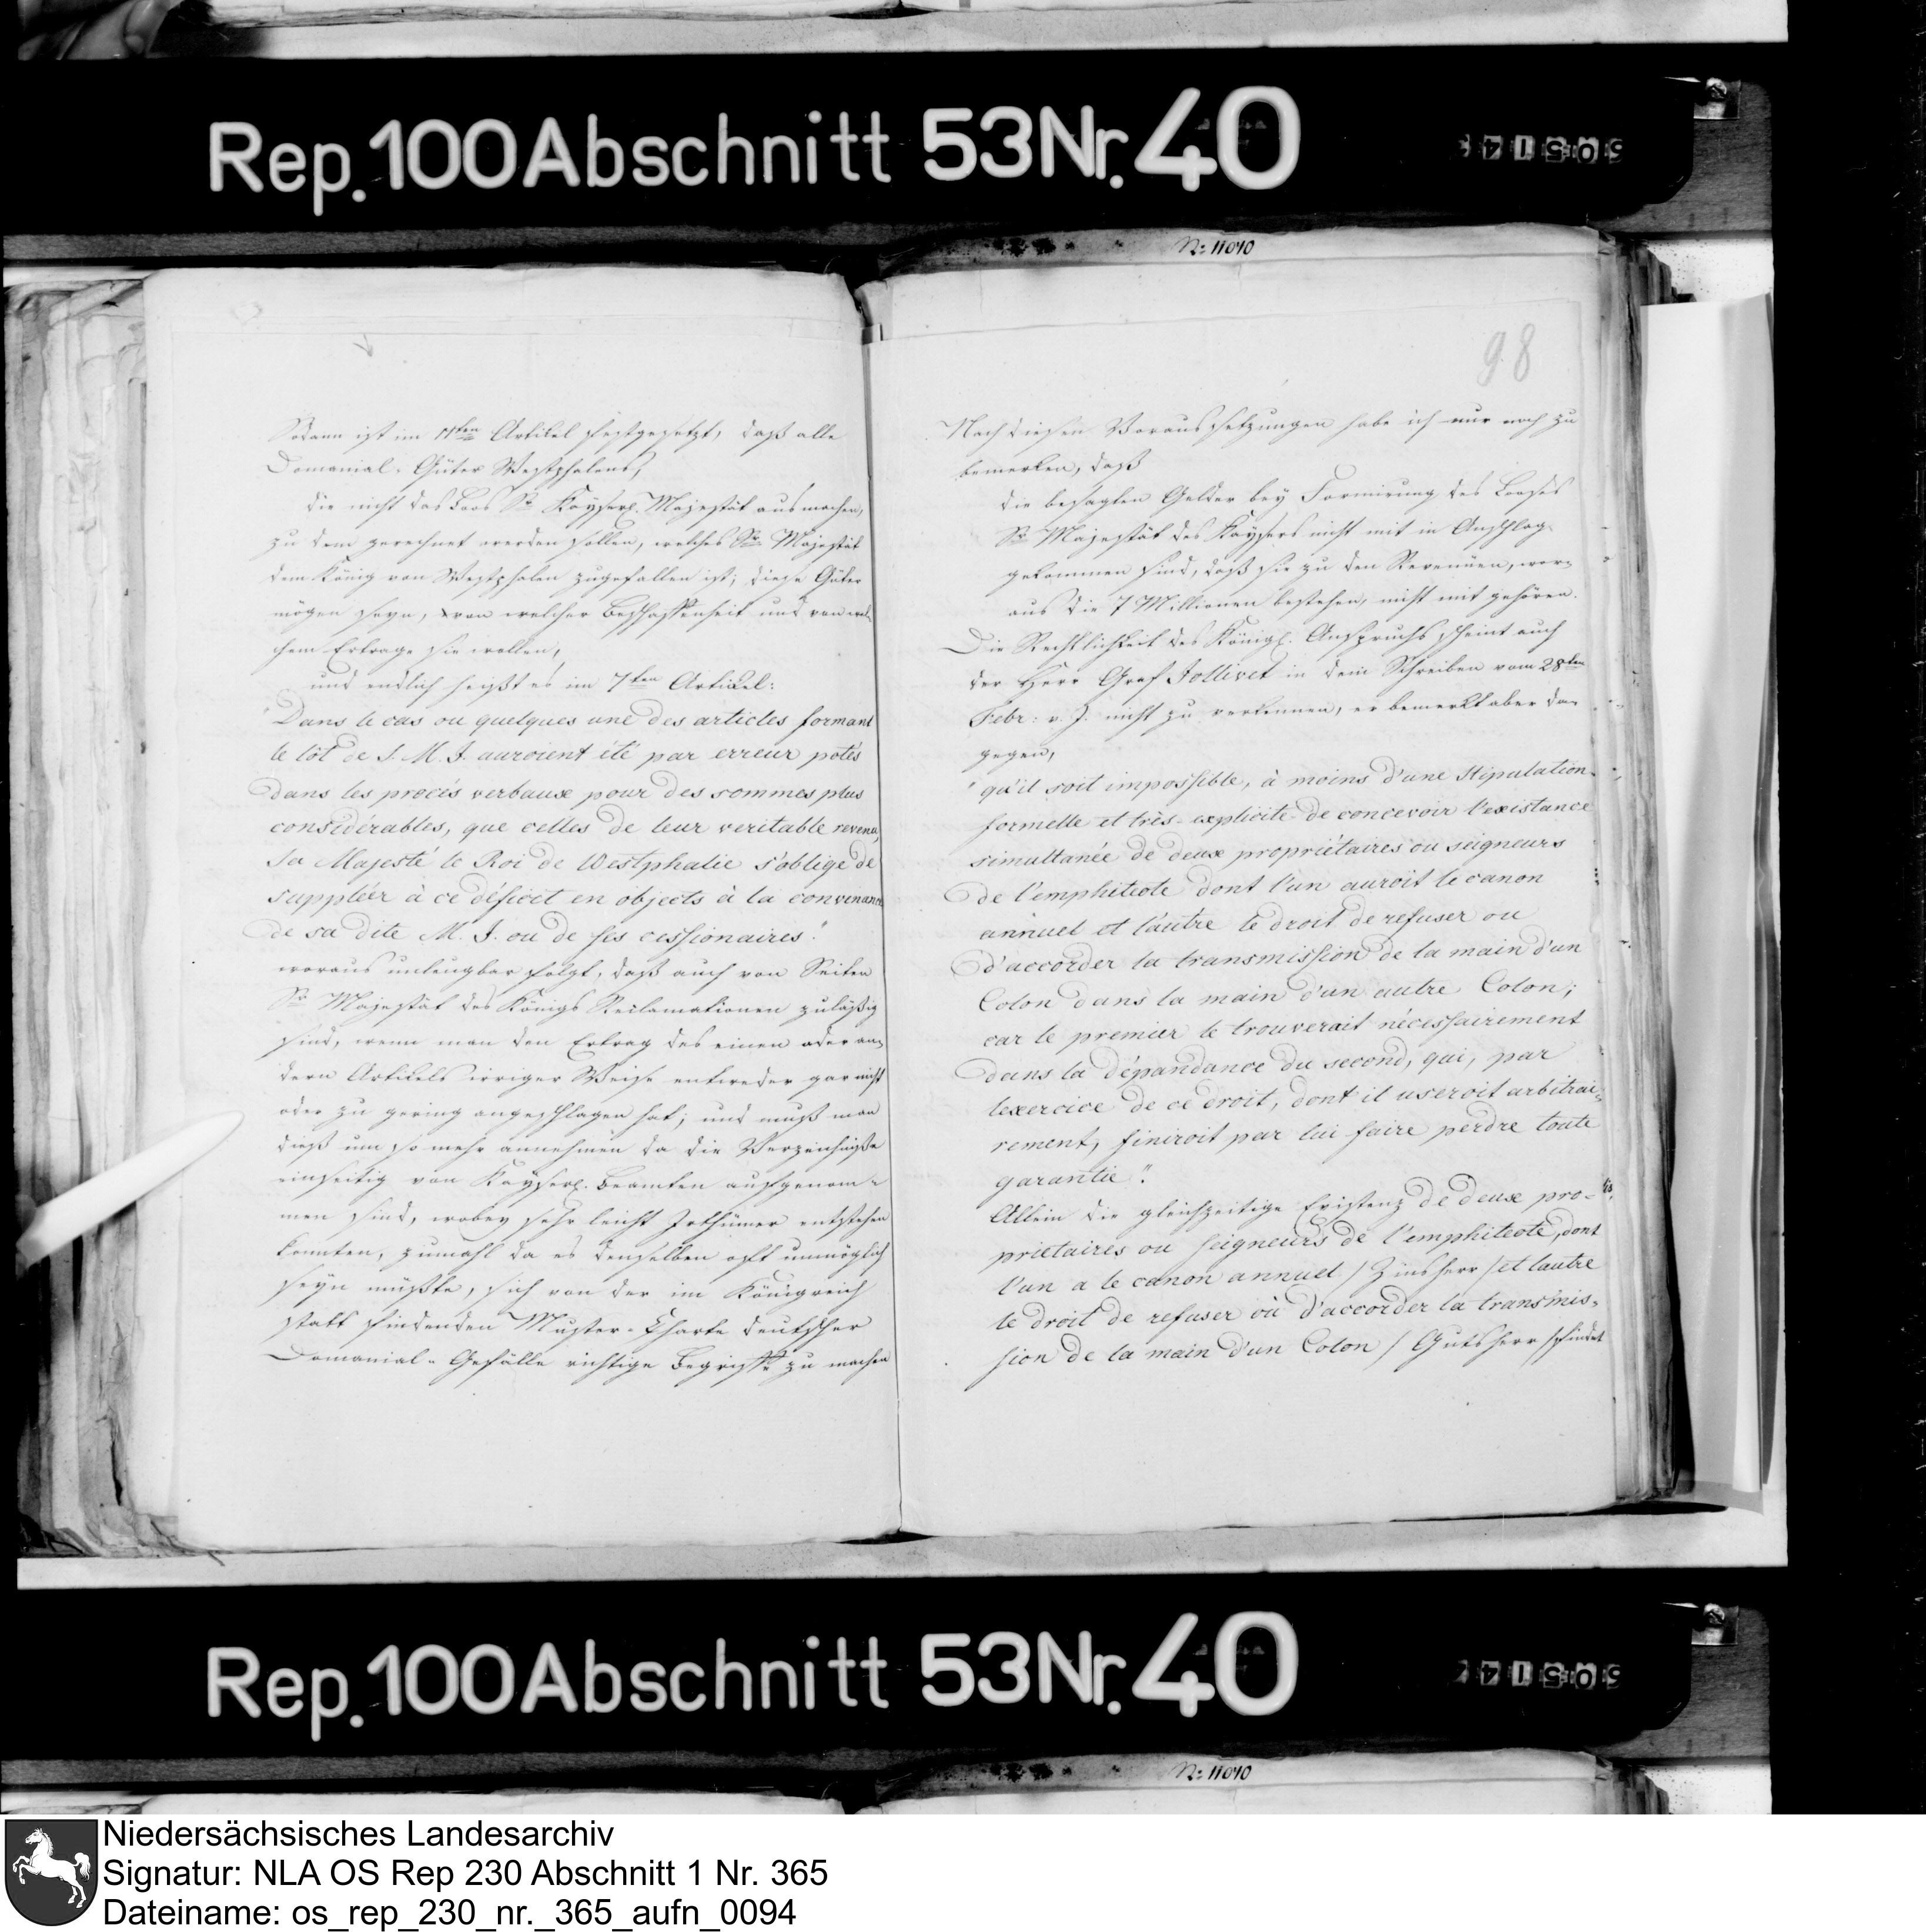 Rep. 100 Abschnitt 53 Nr. 40
No 11040
98
Sodann ist im 11ten Artikel festgesetzt, daß alle
Domanial-Güter Westphalens,
die nicht das Loos Sr Kayserl. Majestät ausmachen,
zu dem gerechnet werden sollen, welches Sr Majestät
dem König von Westphalen zugefallen ist; diese Güter
mögen seyn, von welcher Beschaffenheit und von wel-
chem Ertrage sie wollen,
und endlich heißt es im 7ten Artikel:
"Dans le cas ou quelques une des articles formant
le lôt de S. M. I. auroient été par erreur potés
dans les procés verbaux pour des sommes plus
considérables, que celles de leur veritable revenu,
Sa Majesté le Roi de Westphalie s'oblige de
suppléer à ce déficit en objects à la convenance
de sa dite M. I. ou de ses cessionaires."
woraus unleugbar folgt, daß auch von Seiten
Sr Majestät des Königs Reclamationen zuläßig
sind, wenn man den Ertrag des einen oder an-
dern Artikels irriger Weise entweder gar nicht
oder zu gering angeschlagen hat; und muß man
dieß um so mehr annehmen da die Verzeichniße
einseitig von Kayserl. Beamten aufgenom-
men sind, wobey sehr leicht Irthümer entstehen
konnten, zumahl da es denselben oft unmöglich
seyn müßte, sich von der im Königreich
statt findenden Muster-Charte deutscher
Domanial-Gefälle richtige Begriffe zu machen
Nach diesen Voraussetzungen habe ich nur noch zu
bemerken, daß
die besagten Gelder bey Formirung des Looses
Sr Majestät des Kaysers nicht mit in Anschlag
gekommen sind, daß sie zu den Revenüen, wor-
aus die 7 Millionen bestehen, nicht mit gehören.
Die Rechtlichkeit des Königl. Anspruchs scheint auch
der Herr Graf Jollivet in dem Schreiben vom 28ten
Febr: v. J. nicht zu verkennen, er bemerkt aber da-
gegen,
"qu'il soit impossible, à moins d'une Stipulation
formelle et très-explicite de concevoir l'existance
simultanée de deux propriétaires ou seigneurs
de l'emphiteote dont l'un auroit le canon
annuel et l'autre le droit de refuser ou
d'accorder la transmission de la main d'un
Colon dans la main d'un autre Colon;
car le premier le trouverait nécessairement
dans la dépandance du second, qui, par
lexercice de ce droit, dont il useroit arbitrai-
rement, finiroit par lui faire perdre toute
garantie".
Allein die gleichzeitige Existenz de deux pro-
prietaires ou seigneurs de l'emphiteote, dont
l'un a le canon annuel / Zinsherr / et lautre
le droit de refuser où d'accorder la transmis-
sion de la main d'un Colon / Gutsherr / findet
Rep. 100 Abschnitt 53 Nr. 40
No 11040
Niedersächsisches Landesarchiv
Signatur: NLA OS Rep 230 Abschnitt 1 Nr. 365
Dateiname: os_rep_230_nr._365_aufn_0094